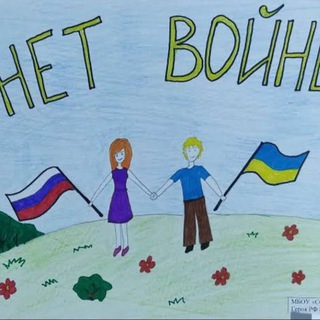 НЕТ ВОЙН
МБОУ «С
Героя РФ